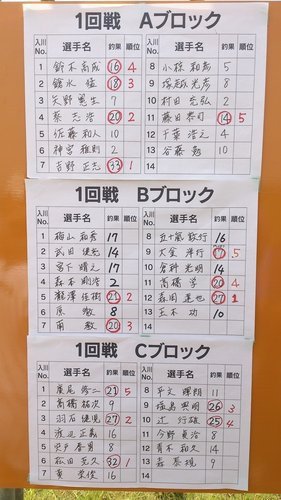 1回戦 Aブロック
入川No. 選手名 釣果 順位 入川No. 選手名 釣果 順位
1 鈴木高成 16 4 8 小椋和彦 5
2 鏑水 猛 18 3 9 塚越光彦 8
3 矢野克生 7 10 村田克弘 2
4 葛 志浩 20 2 11 藤田泰司 14 5
5 佐藤和人 10 12 千葉浩之 4
6 神宮雅則 2 13 谷藤 勉 10
7 吉野正克 33 1 14
1回戦 Bブロック
入川No. 選手名 釣果 順位 入川No. 選手名 釣果 順位
1 梅山和秀 17 8 五十嵐敏行 16
2 武田健光 14 9 大金洋行 17 5
3 宮下晴之 17 10 倉科光明 14
4 森本剛浩 2 11 高橋 学 20 4
5 瀧澤佳樹 21 2 12 森岡達也 27 1
6 原 徹 8 13 玉木 功 10
7 南 敦 20 3 14
1回戦 Cブロック
入川No. 選手名 釣果 順位 入川No. 選手名 釣果 順位
1 尾 修二 21 5 8 平文輝朗 11
2 高橋拡次 9 9 塩島興明 26 3
3 羽石健児 27 2 10 辻 行雄 25 4
4 渡辺正義 16 11 今野真治 8
5 宍戸喬男 8 12 青木和久 14
6 松田克久 32 1 13 森 泰規 9
7 東 栄俊 16 14